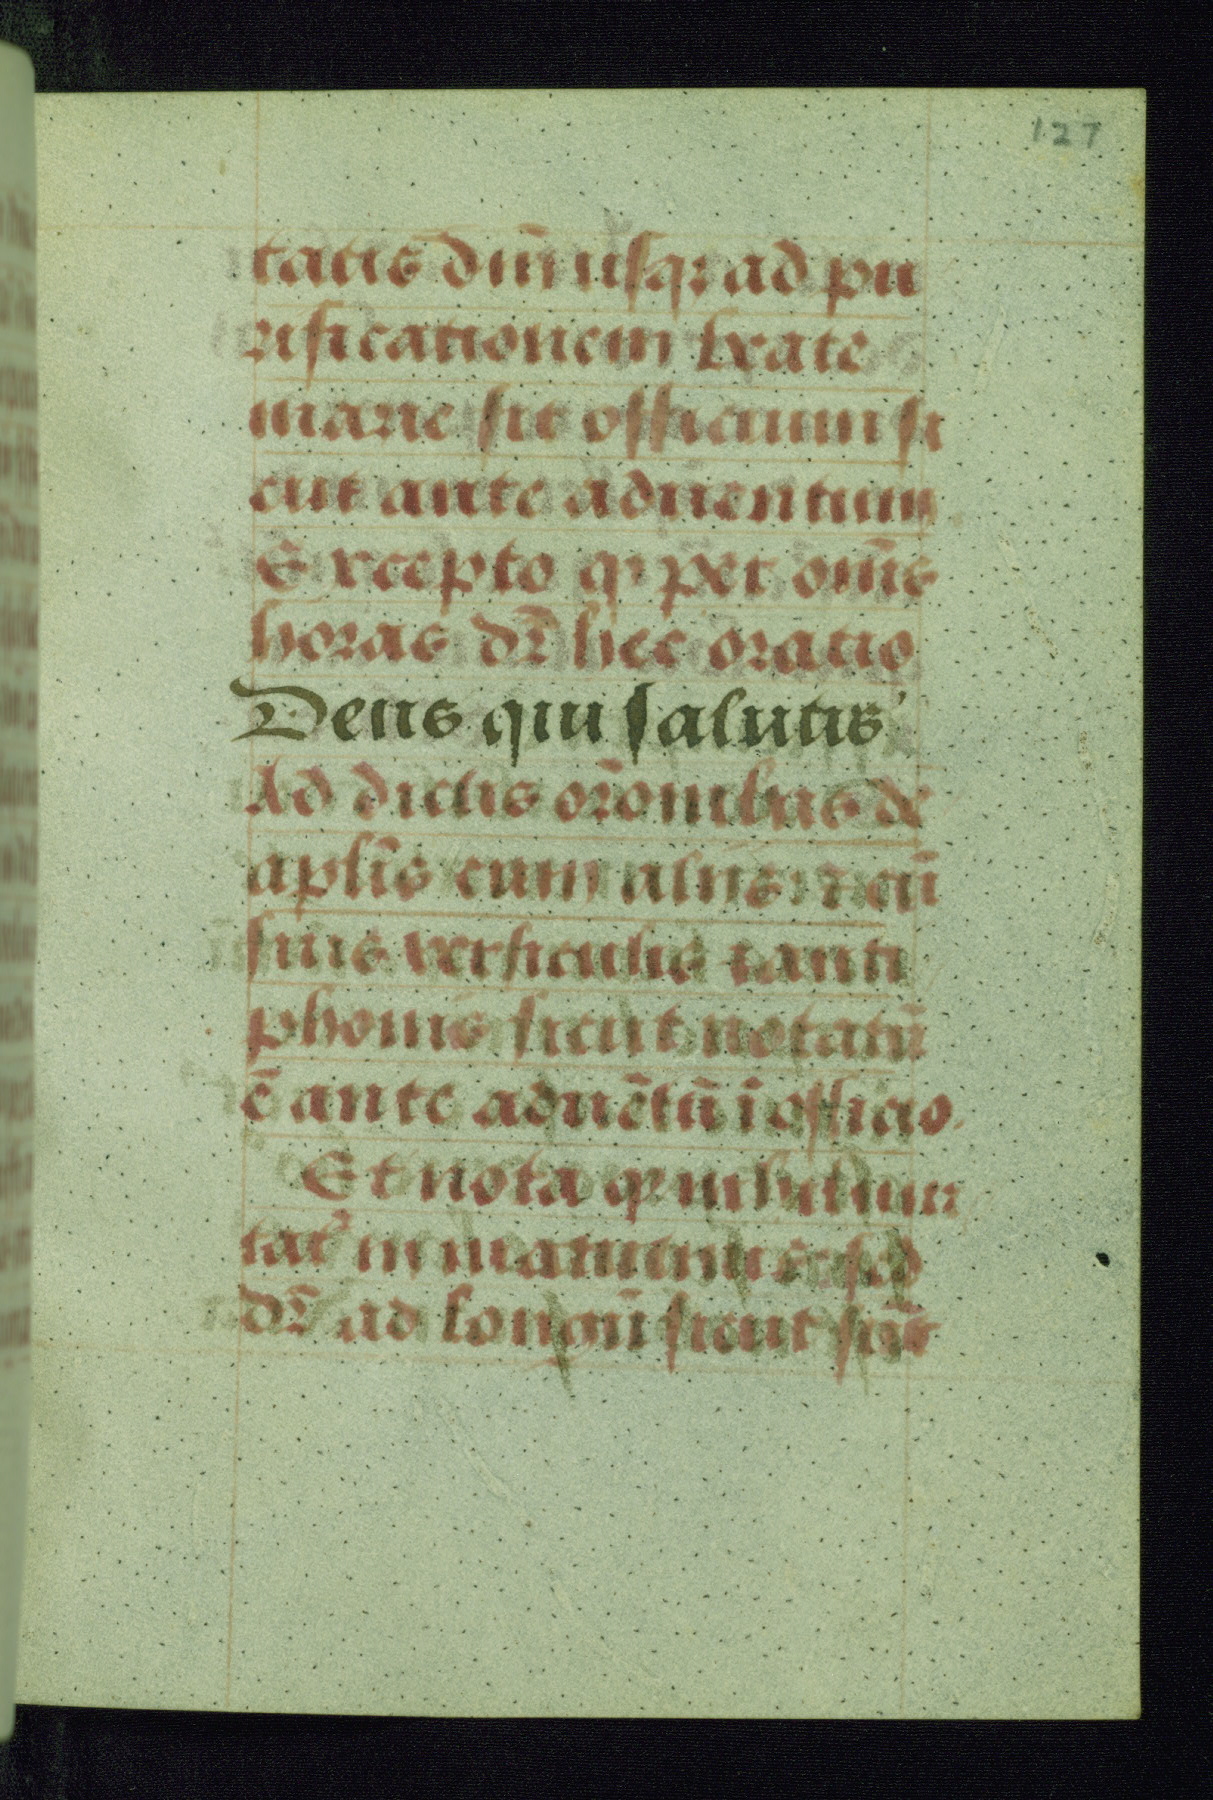 127
tatis dñi usqȝ ad pu
rificationem beate
marie fit officium si
cut ante aduentum
Excepto qꝫ per om̄s
horas dr̄ hec oratio
Deus qui salutis
Ad dictis orōnibus de
apl̄is cum aliis ⁊ cū
suis versiculis ⁊ anti
phonis sicut notatū
ē ante aduētū ī officio.
Et nota qꝫ nichil
tat᷑ in matutinis sed
dr̄ ad longū sicut